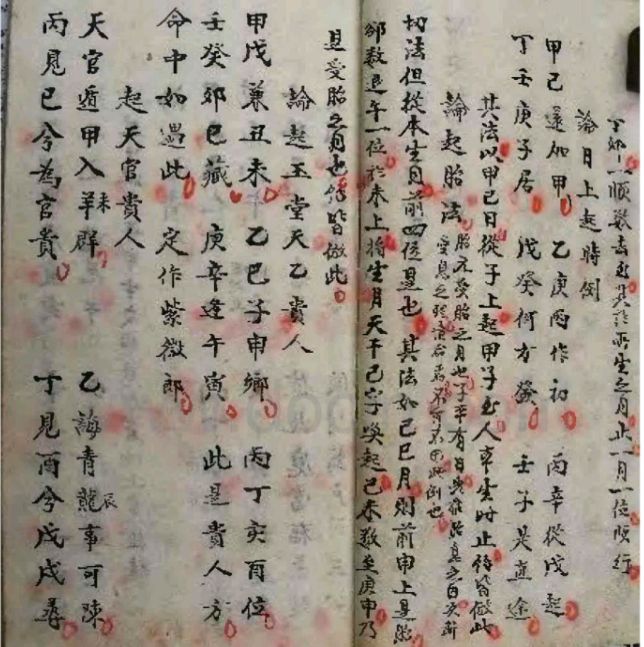 論日上起時例
甲己還加甲 乙庚丙作初 丙辛從戊起
丁壬庚子居 戊癸何方發 壬子是直途
其法以甲己日從子上起甲子至人本生時止餘皆倣此
論起胎法 胎元受胎之月也子平有
切法但從本生月前四位是也 其法如己巳月則前申上是胎
却数退午一位於未上将生月天干己字喚起己未数至庚申乃
是受胎之月也餘皆倣此
論起玉堂天乙貴人
甲戊兼丑未 乙己子申鄉 丙丁亥酉位
壬癸卯巳藏 庚辛逢午寅 此是貴人方
命中如遇此 定作紫微郎
起天官貴人
天官遁甲入羊未群 乙誨青龍辰事可陳
丙見巳兮為官貴 丁見酉兮戊戌尋